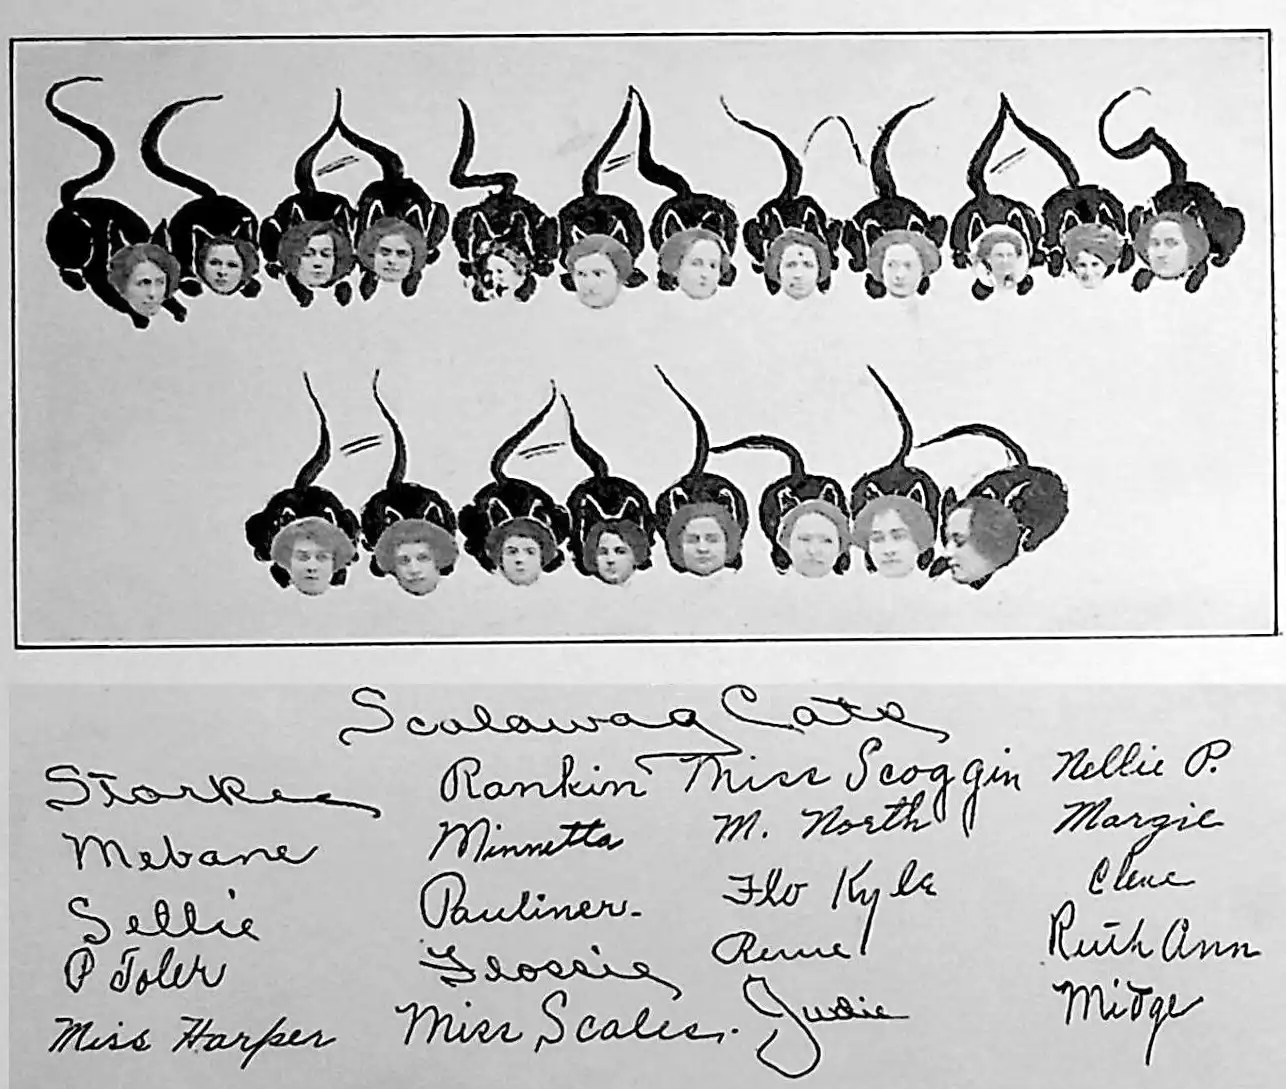 SCALAWAG
Scalawag Cats
Rankin Miss Scoggin Nellie P.
Mebane Minnetta M. North Margie
Sellie Pauliner. Flo Kyle
P Toler Flossie Ruth Ann
Miss Harper Miss Scales. Judie Midge